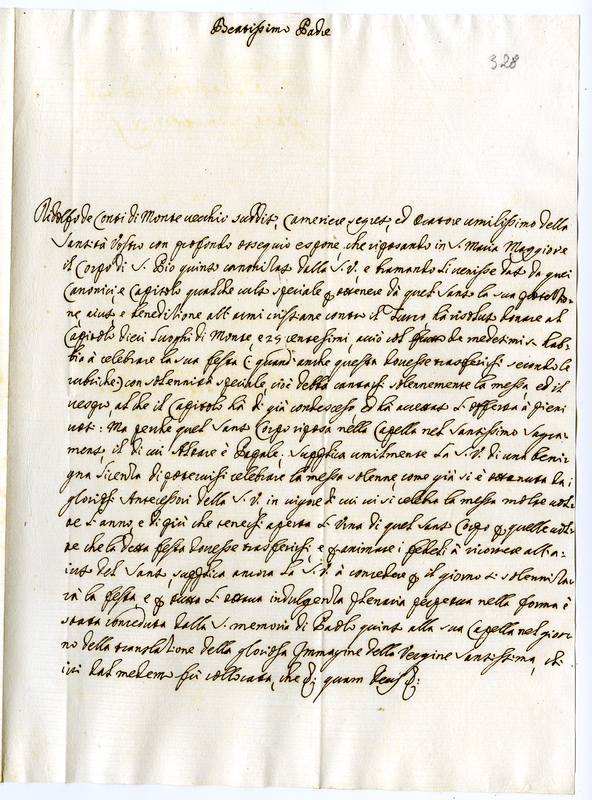 Beatissimo Padre
328
Ridolfo de Conti di Monte vecchio suddit, Cameriere segret, ed Oratore umilissimo della
Santità Vostra con profondo ossequio espone che riposando in S. Maria Maggiore
il Corpo di S. Pio quinto canonizat dalla S. V. e bramando si venisse dat da quei
Canonici e Capitolo qualche culto speciale p ottenere da quel Sant la sua
ne aiuto e beneditione all armi cristiane contro il Turco ha risolut donare al
Capitolo dieci Luoghi di Monte e 25 centesimi, acciò col da medesimi s hab
bia à celebrare la sua festa (: quand anche questa dovesse trasferirsi secondo le
rubriche:) con solennità speciale, cioè debba cantarsi solennemente la messa, ed il
vespro, al che il Capitolo hà di già condesceso, ed ha accettat l offerta à pieni
voti: Ma perche quel Sant Corpo riposa nella Capella nel Santissimo Sagra-
ment, il di cui Altare è Papale: Supplica umilmente la S. V. di una beni-
gna licenza di potervisi celebrare la messa solenne come già si è ottenuta da i
gloriosi Antecessori della S. V. in vigore di cui vi si celebra la messa molte vol-
te l anno, e di più che tenersi aperta l Urna di quel Sant Corpo p quelle vol-
te che la detta festa dovesse trasferirsi, e p animare i fedeli à ricorrere all a-
iuto del Sant supplica ancora la S. V. à concedere p il giorno si solennizza-
rà la festa e p tutta l ottava indulgenza plenaria perpetua nella forma è
stata conceduta dalla S. memoria di Paolo quint alla sua Capella nel gior-
no della translatione della gloriosa Immagine della Vergine Santissima, che
ivi dal medemo fù collocata, che quam Deus